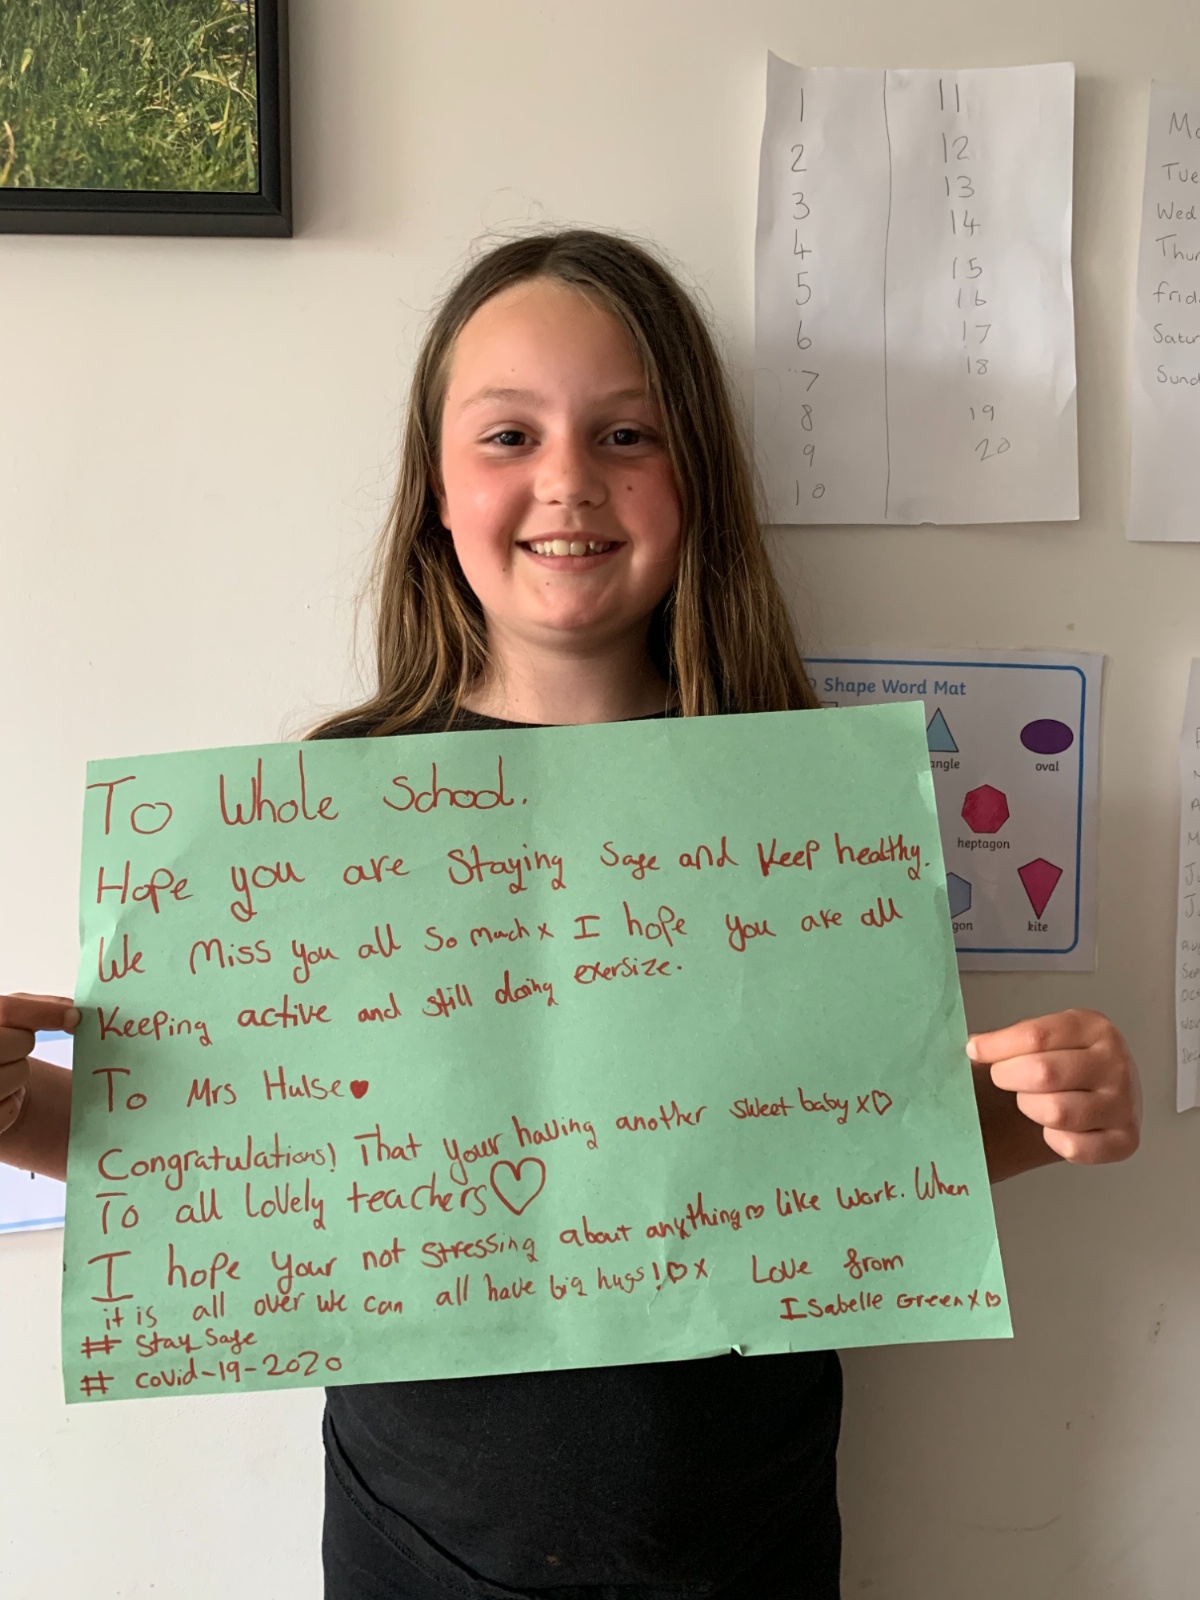 To Whole School.
Hope you are Staying Safe and Keep healthy.
We Miss you all So much x I hope you are all
Keeping active and still doing exersize.
To Mrs Hulse ♥
Congratulations! That your having another sweet baby x ♡
To all Lovely teachers ♡
I hope your not stressing about anything ♡ like work. When
it is all over we can all have big hugs! ♡ x Love from
Isabelle Green x ♡
# Stay Safe
# covid-19-2020
1
2
3
4
5
6
7
8
9
10
11
12
13
14
15
16
17
18
19
20
Tue
Wed
Thur
Frid
Satur
Sund
Shape Word Mat
angle
oval
heptagon
gon
kite